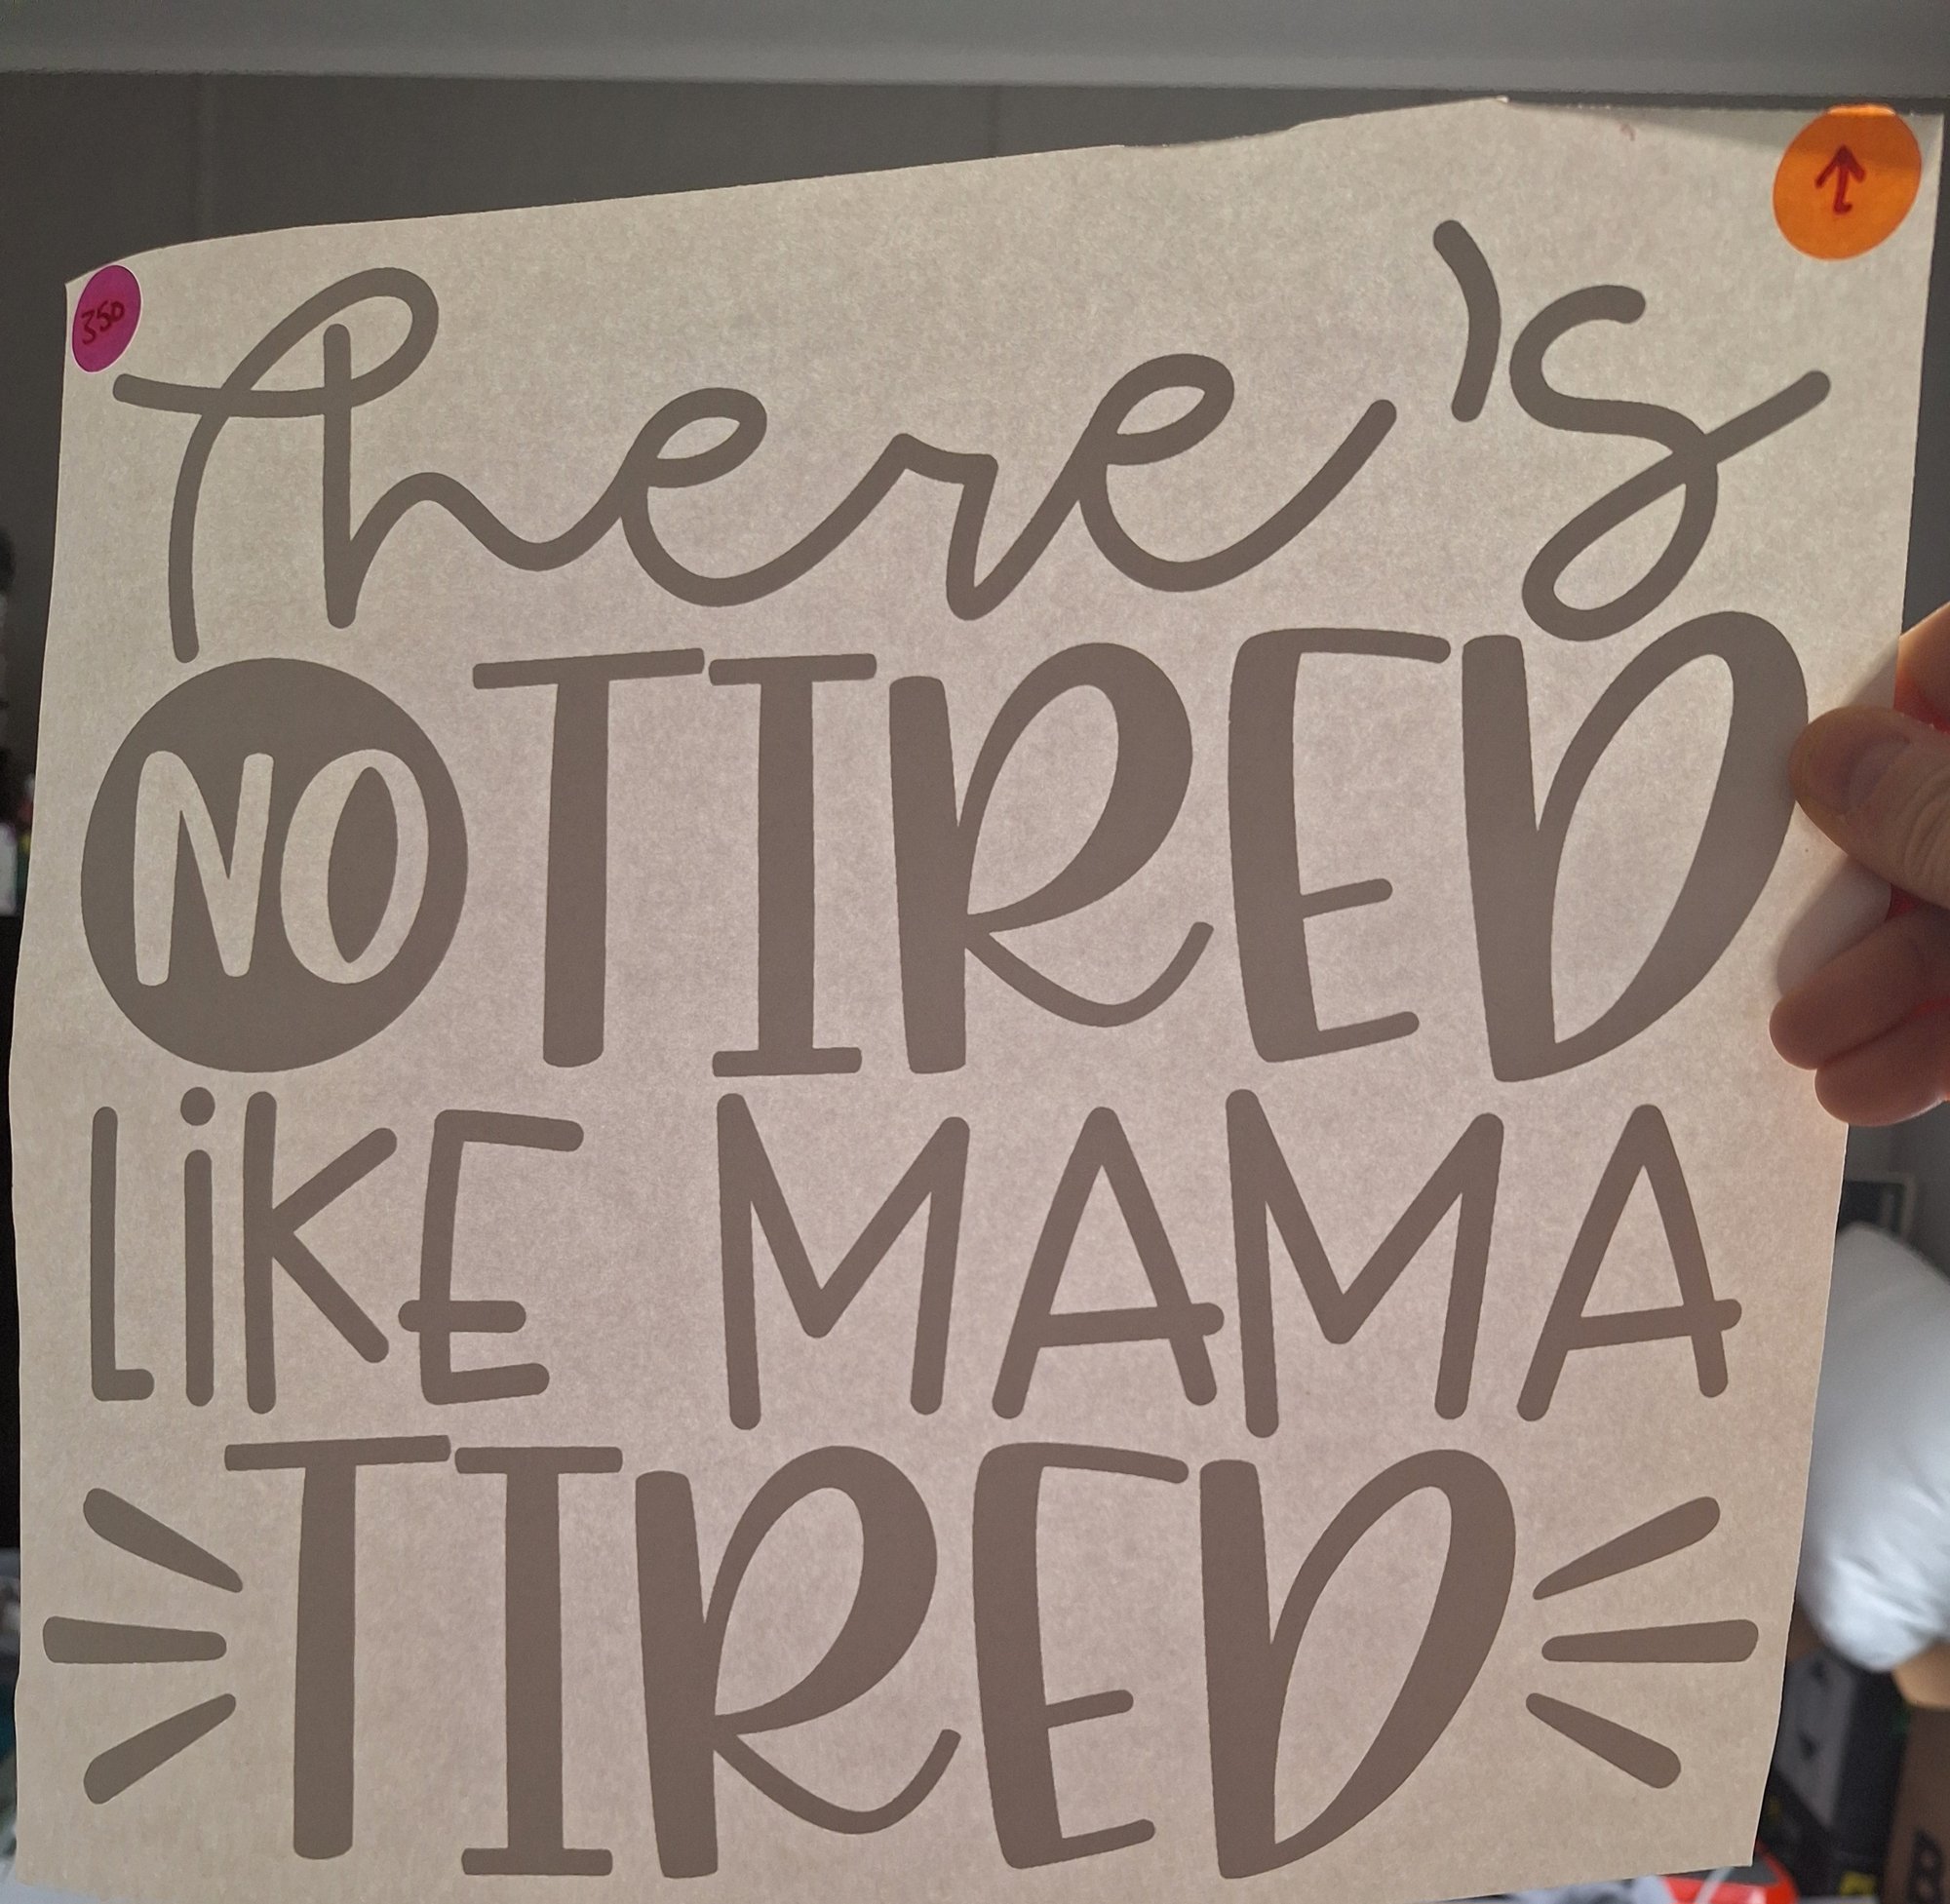 350
There's
NO TIRED
LiKE MAMA
TIRED